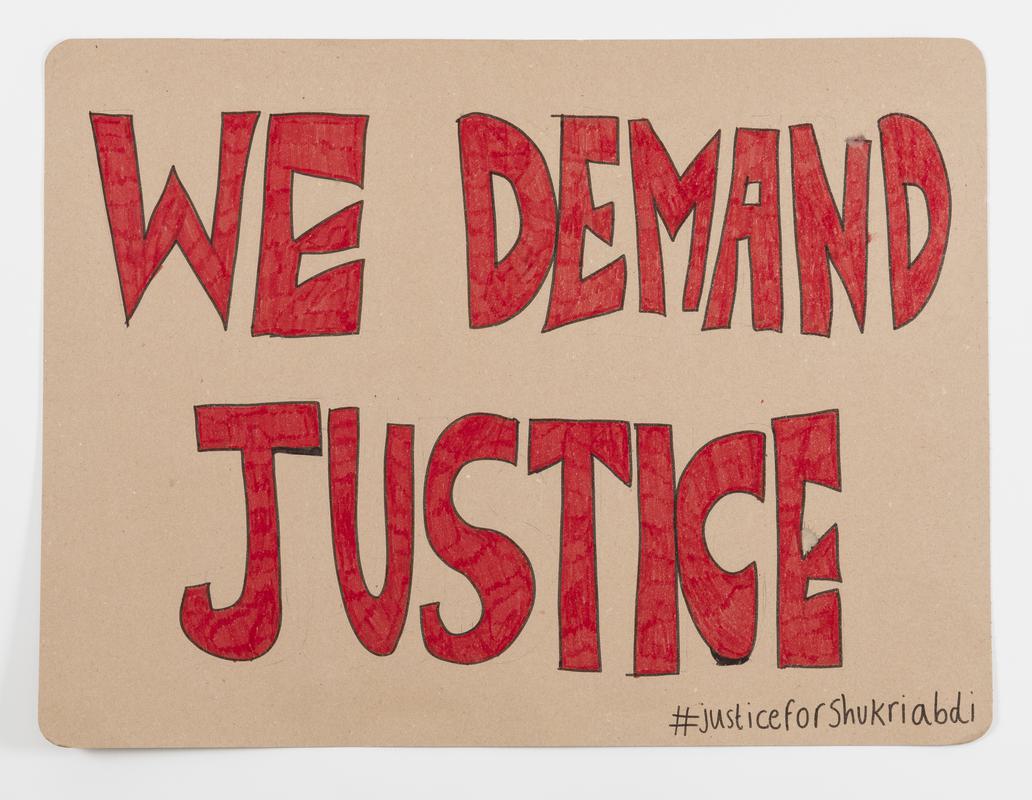 WE DEMAND
JUSTICE
#justiceforShukriabdi